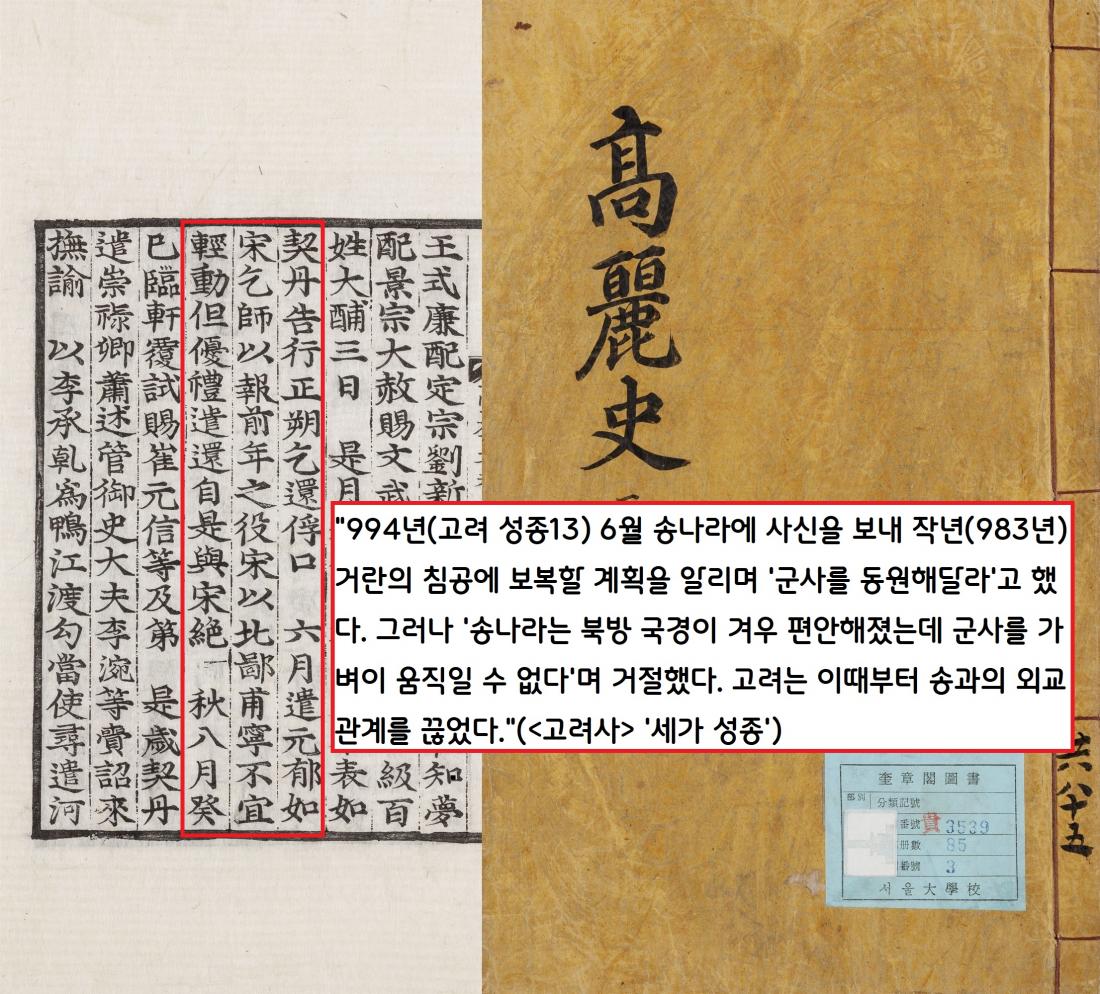 高麗史
王式廉配定宗劉新
知夢
配景宗大赦賜文武
級百
姓大酺三日 是月
表如
契丹告行正朔乞還俘口 六月遣元郁如
宋乞師以報前年之役宋以北鄙甫寧不宜
輕動但優禮遣還自是與宋絶 秋八月癸
巳臨軒覆試賜崔元信等及第 是歲契丹
遣崇祿卿蕭述管御史大夫李涴等賫詔來
撫諭 以李承乹爲鴨江渡勾當使尋遣河
"994년(고려 성종13) 6월 송나라에 사신을 보내 작년(983년)
거란의 침공에 보복할 계획을 알리며 '군사를 동원해달라'고 했
다. 그러나 '송나라는 북방 국경이 겨우 편안해졌는데 군사를 가
벼이 움직일 수 없다'며 거절했다. 고려는 이때부터 송과의 외교
관계를 끊었다."(<고려사> '세가 성종')
共八十五
奎章閣圖書
部別 分類記號
番號 貴 3539
册數 85
番號 3
서울大學校